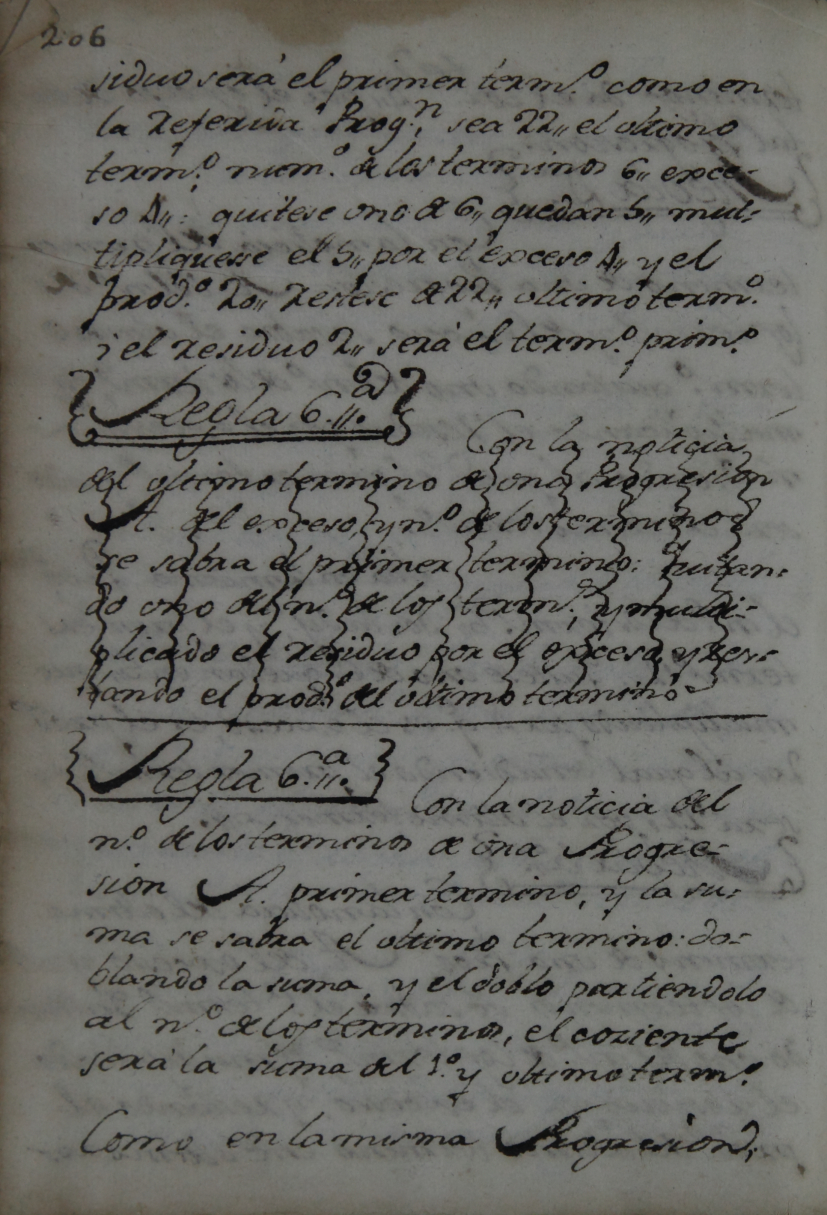 206
siduo será el primer term.º como en
la referida Prog.n, sea 22,, el ultimo
term.º, num.º de los terminos 6,, exce-
so 4,,: quitese uno de 6,, quedan 5,, mul-
tipliquese el 5,, por el exceso 4,, y el
prod.º 20,, restese de 22,, ultimo term.º
i el residuo 2,, será el term.º prim.º
Regla 6.a
Con la noticia
del ultimo termino de una Progresion
A. del exceso, y n.º de los terminos
se sabra el primer termino: quitan-
do uno del n.º de los term.s, y multi-
plicado el residuo por el exceso, y res-
tando el prod.º del ultimo termino
Regla 6.a
Con la noticia del
n.º de los terminos de una Progre-
sion A. primer termino, y la su-
ma se sabra el ultimo termino: do-
blando la suma, y el doblo partiendolo
al n.º de los terminos, el coziente
será la suma del 1.º y ultimo term.º
Como en la misma Progresion,